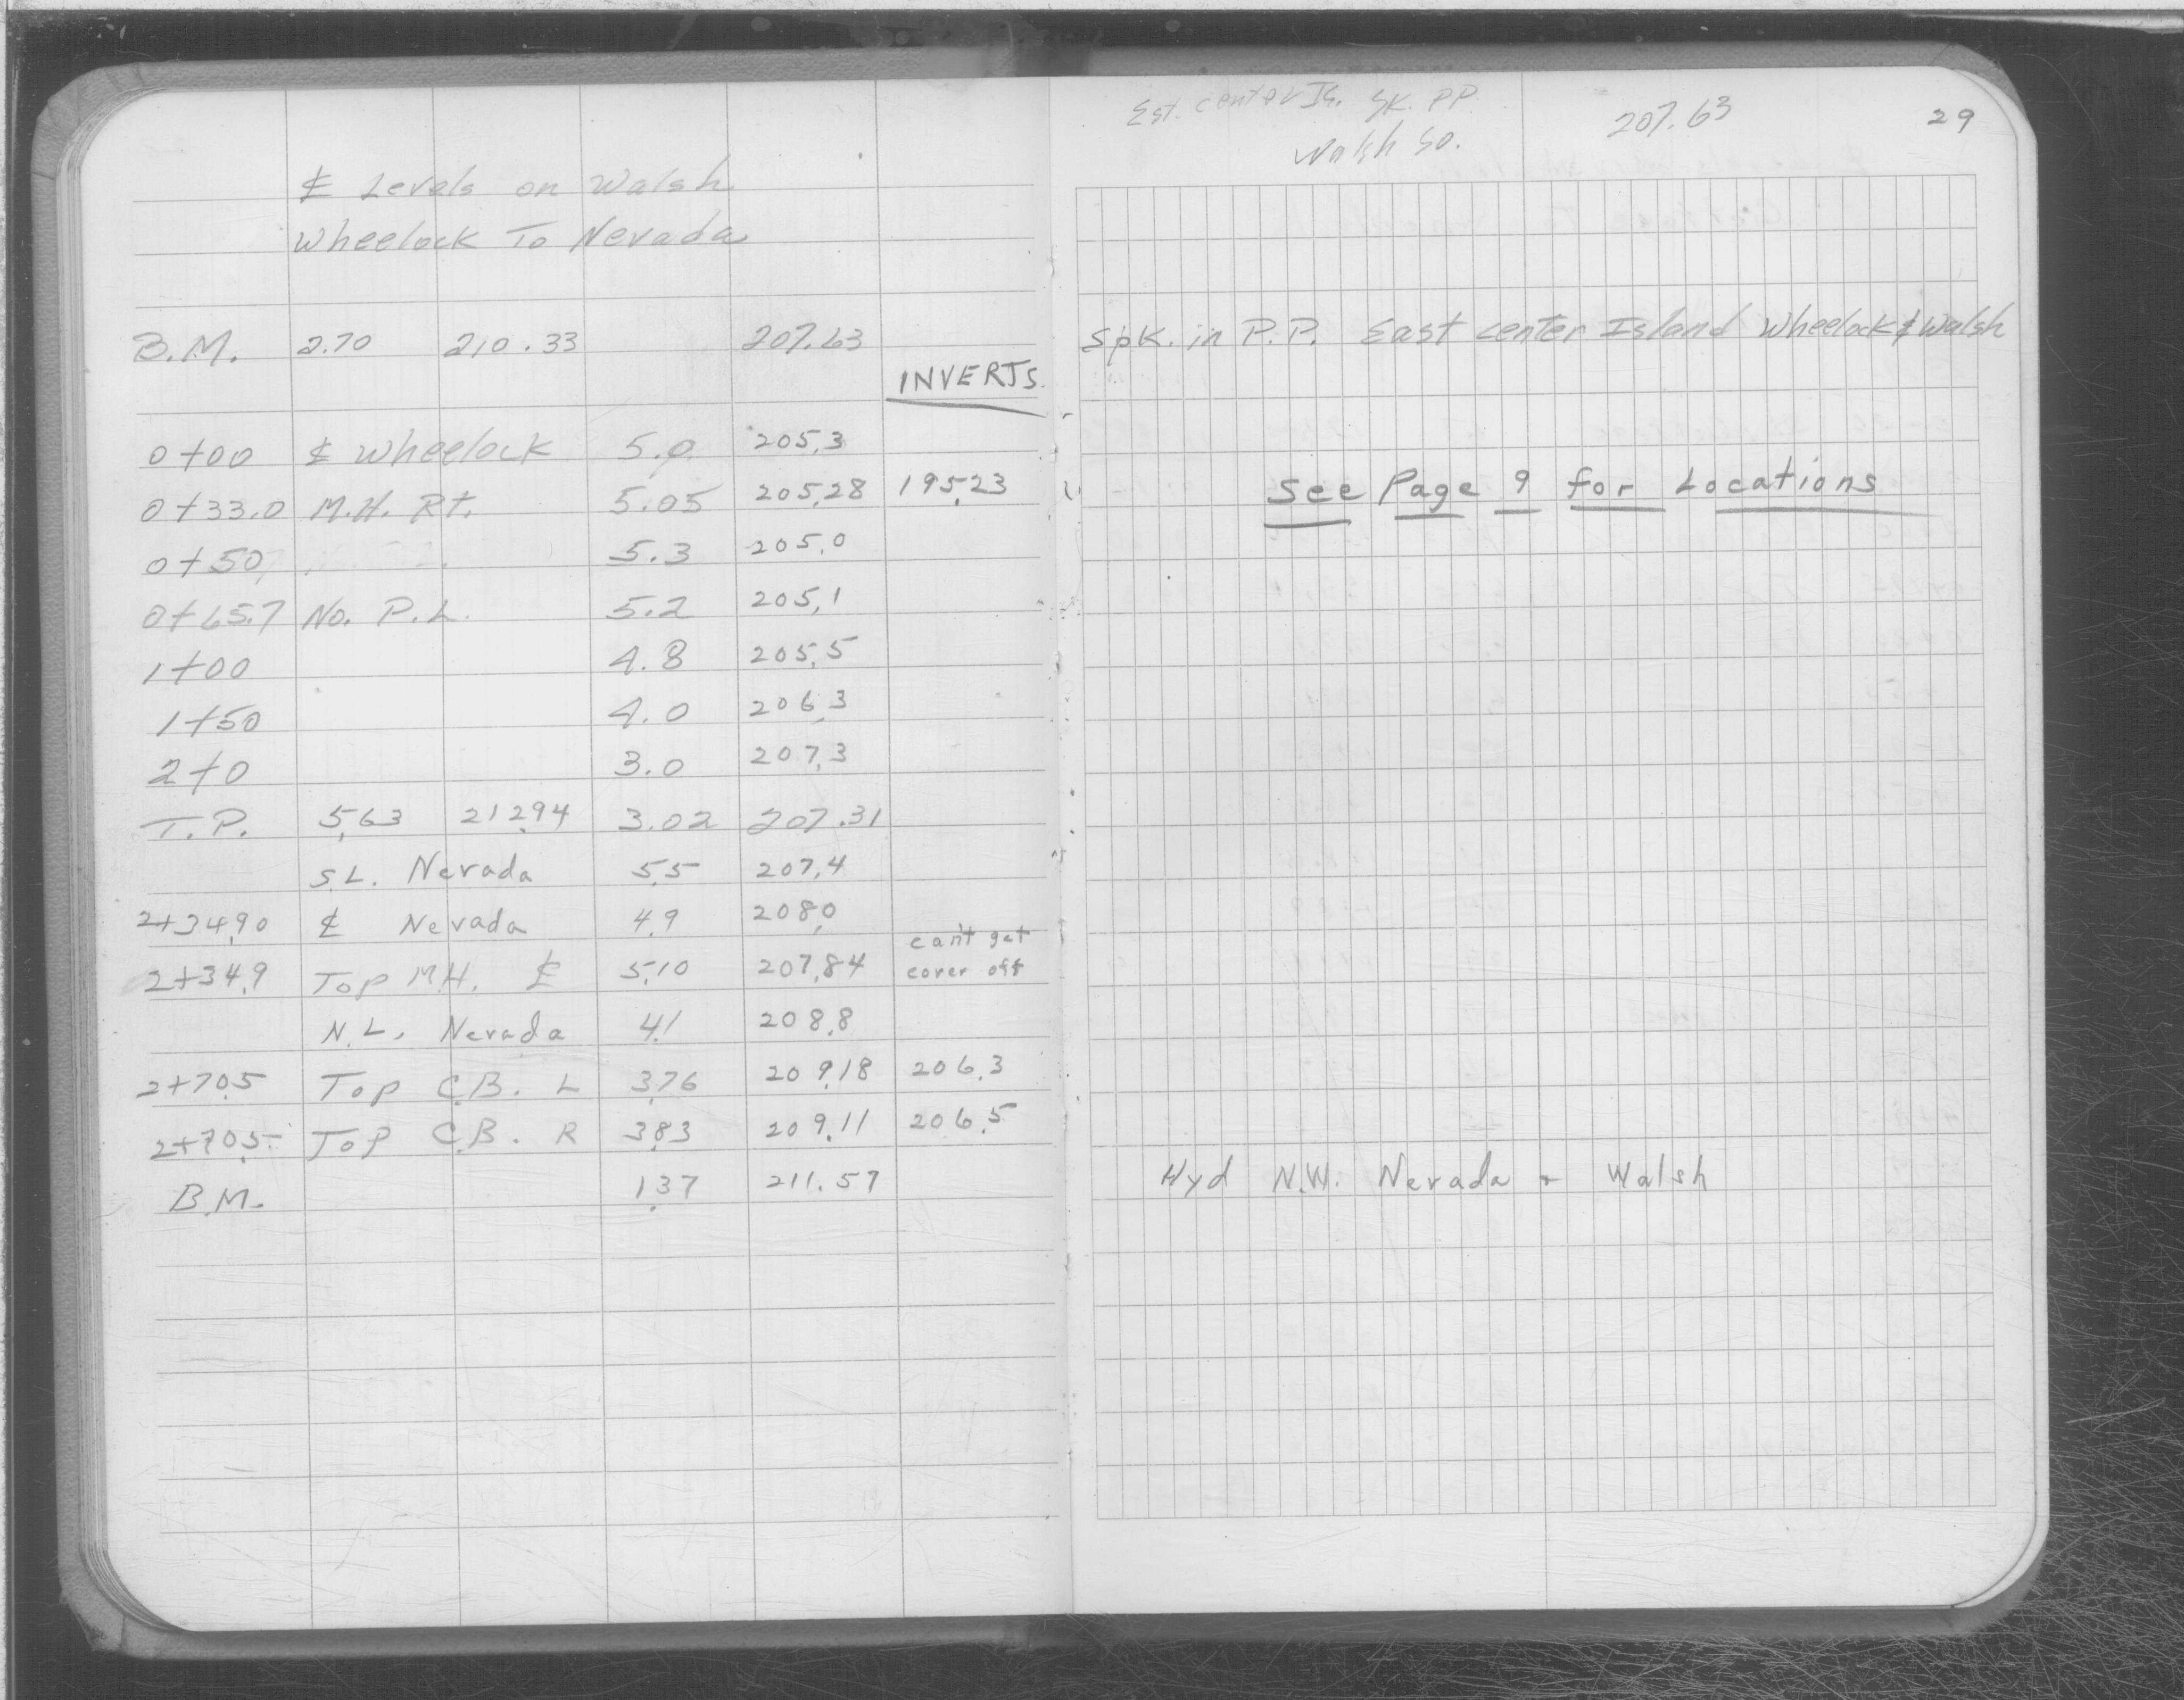 ℄ Levels on Walsh
Wheelock To Nevada
B.M. 2.70 210.33 207.63
INVERTS
0+00 ℄ Wheelock 5.0 205.3
0+33.0 M.H. Rt. 5.05 205.28 195.23
0+50 5.3 205.0
0+65.7 No. P.L. 5.2 205.1
1+00 4.8 205.5
1+50 4.0 206.3
2+0 3.0 207.3
T.P. 5.63 212.94 3.02 207.31
S.L. Nevada 5.5 207.4
2+34.90 ℄ Nevada 4.9 208.0
2+34.9 Top M.H. ℄ 5.10 207.84 can't get cover off
N.L. Nevada 4.1 208.8
2+70.5 Top C.B. L 3.76 209.18 206.3
2+70.5 Top C.B. R 3.83 209.11 206.5
B.M. 1.37 211.57
Est. center Is. SK. PP. 207.63 29
Walsh So.
Spk. in P.P. East center Island Wheelock & Walsh
See Page 9 for Locations
Hyd N.W. Nevada + Walsh